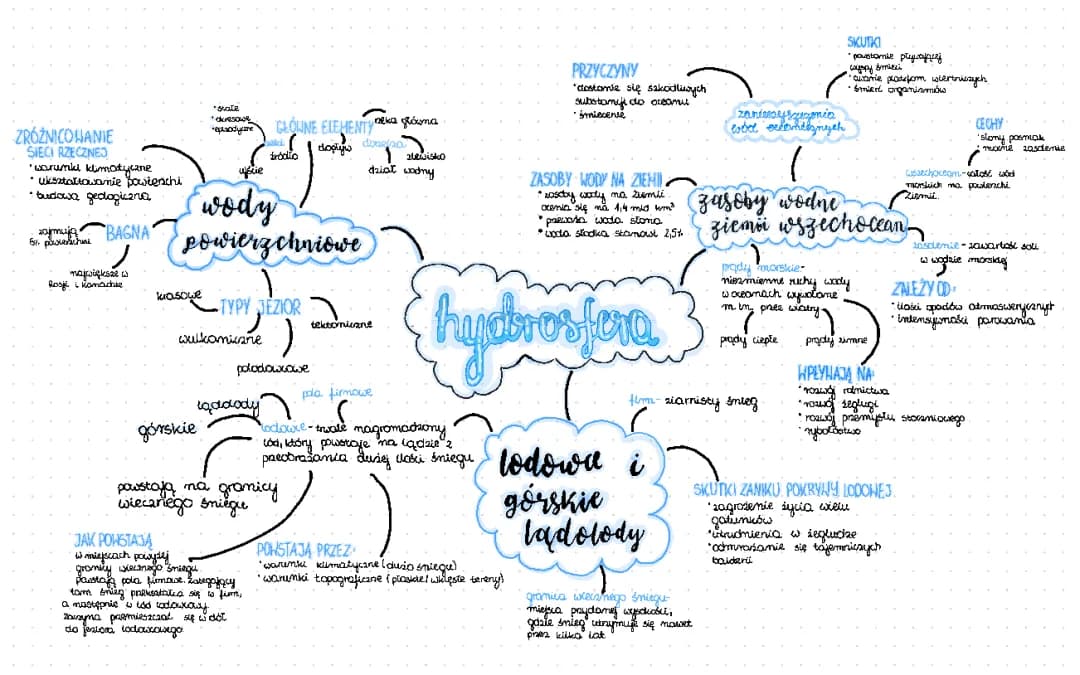 hydrosfera
wody
powierzchniowe
ZRÓŻNICOWANIE
SIECI RZECZNEJ
• warunki klimatyczne
• ukształtowanie powierzchi
• budowa geologiczna
GŁÓWNE ELEMENTY
• stałe
• okresowe
• epizodyczne
rzeki
ujście
źródło
dopływ
dorzecza
rzeka główna
zlewisko
dział wodny
BAGNA
zajmują
6% powierzchni
największe w
Rosji i Kanadzie
TYPY JEZIOR
krasowe
wulkaniczne
polodowcowe
tektoniczne
zasoby wodne
ziemi wszechocean
ZASOBY WODY NA ZIEMI
• zasoby wody na ziemii
ocenia się na 1,4 mld km³
• przeważa woda słona
• woda słodka stanowi 2,5%
zanieczyszczenia
wód oceanicznych
PRZYCZYNY
• dostanie się szkodliwych
substancji do oceanu
• śmiecenie
SKUTKI
• powstanie pływającej
wyspy śmieci
• awarie platform wiertniczych
• śmierć organizmów
wszechocean - całość wód
morskich na powierzchi
Ziemii.
CECHY
• słony posmak
• nazwa zasolenie
zasolenie - zawartość soli
w wodzie morskiej
ZALEŻY OD:
• ilości opadów atmoswerycznyh
• intensywności parowania
prądy morskie -
niezmienne ruchy wody
w oceanach wywołane
m.in. przez wiatry
prądy ciepłe
prądy zimne
WPŁYWAJĄ NA:
• rozwój rolnictwa
• rozwój żeglugi
• rozwój przemysłu stoczniowego
• rybołóstwo
lodowce i
górskie
lądolody
firn - ziarnisty śnieg
SKUTKI ZANIKU POKRYWY LODOWEJ
• zagrożenie życia wielu
gatunków
• utrudnienia w żegludze
• odmrażanie się tajemniczych
bakterii
granica wiecznego śniegu -
miejsca przydanej wysokości,
gdzie śnieg utrzymuje się nawet
przez kilka lat
lodowiec - trwale nagromadzony
lód, który powstaje na lądzie z
przeobrażania dużej ilości śniegu
pola firnowe
lądolody
górskie
powstają na granicy
wiecznego śniegu
JAK POWSTAJĄ
w miejscach powyżej
granicy wiecznego śniegu
powstają pola firnowe. Zalegający
tam śnieg przekształca się w firn,
a następnie w lód lodowcowy
zaczyna przemieszczać się w dół
do jeziora lodowcowego
POWSTAJĄ PRZEZ:
• warunki klimatyczne (dużo śniegu)
• warunki topograficzne (płaskie/wklęsłe tereny)